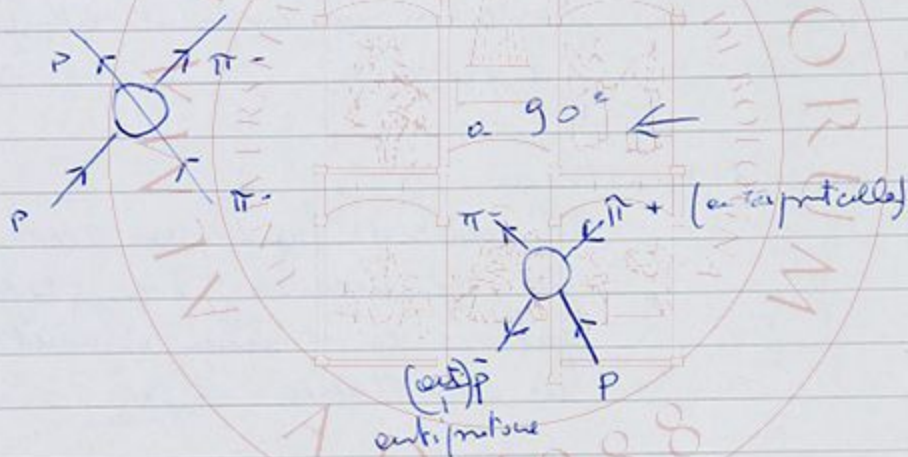 P π-
a 90°
P π-
π- π+ (antiparticelle)
(anti) p̄ P
antiprotone